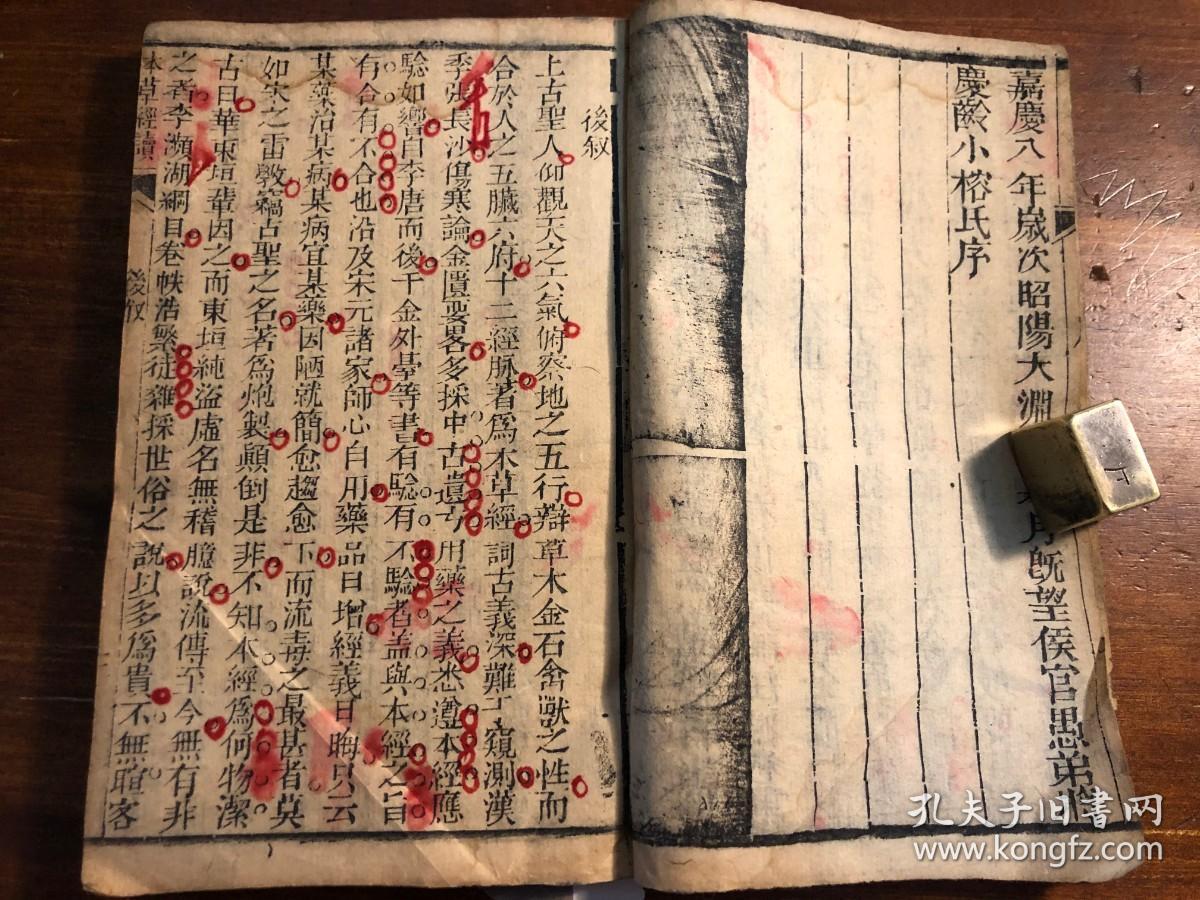 嘉慶八年歲次昭陽大淵月既望侯官愚弟
慶齡小榕氏序
後敘
上古聖人仰觀天之六氣俯察地之五行辯草木金石禽獸之性而
合於人之五臟六府十二經脉著爲本草經詞古義深難于窺測漢
季張長沙傷寒論金匱要畧多採中古遺方用藥之義悉遵本經應
騐如響自李唐而後千金外臺等書有騐有不騐者盖與本經之旨
有合有不合也沿及宋元諸家師心自用藥品日增經義日晦只云
某藥治某病某病宜某藥因陋就簡愈趨愈下而流毒之最甚者莫
如宋之雷斅竊古聖之名著爲炮製顛倒是非不知本經爲何物潔
古日華東垣輩因之而東垣純盜虛名無稽臆說流傳至今無有非
之者李瀕湖綱目卷帙浩繁徒雜採世俗之說以多爲貴不無喧客
本草經讀
後敘
孔夫子旧书网
www.kongfz.com